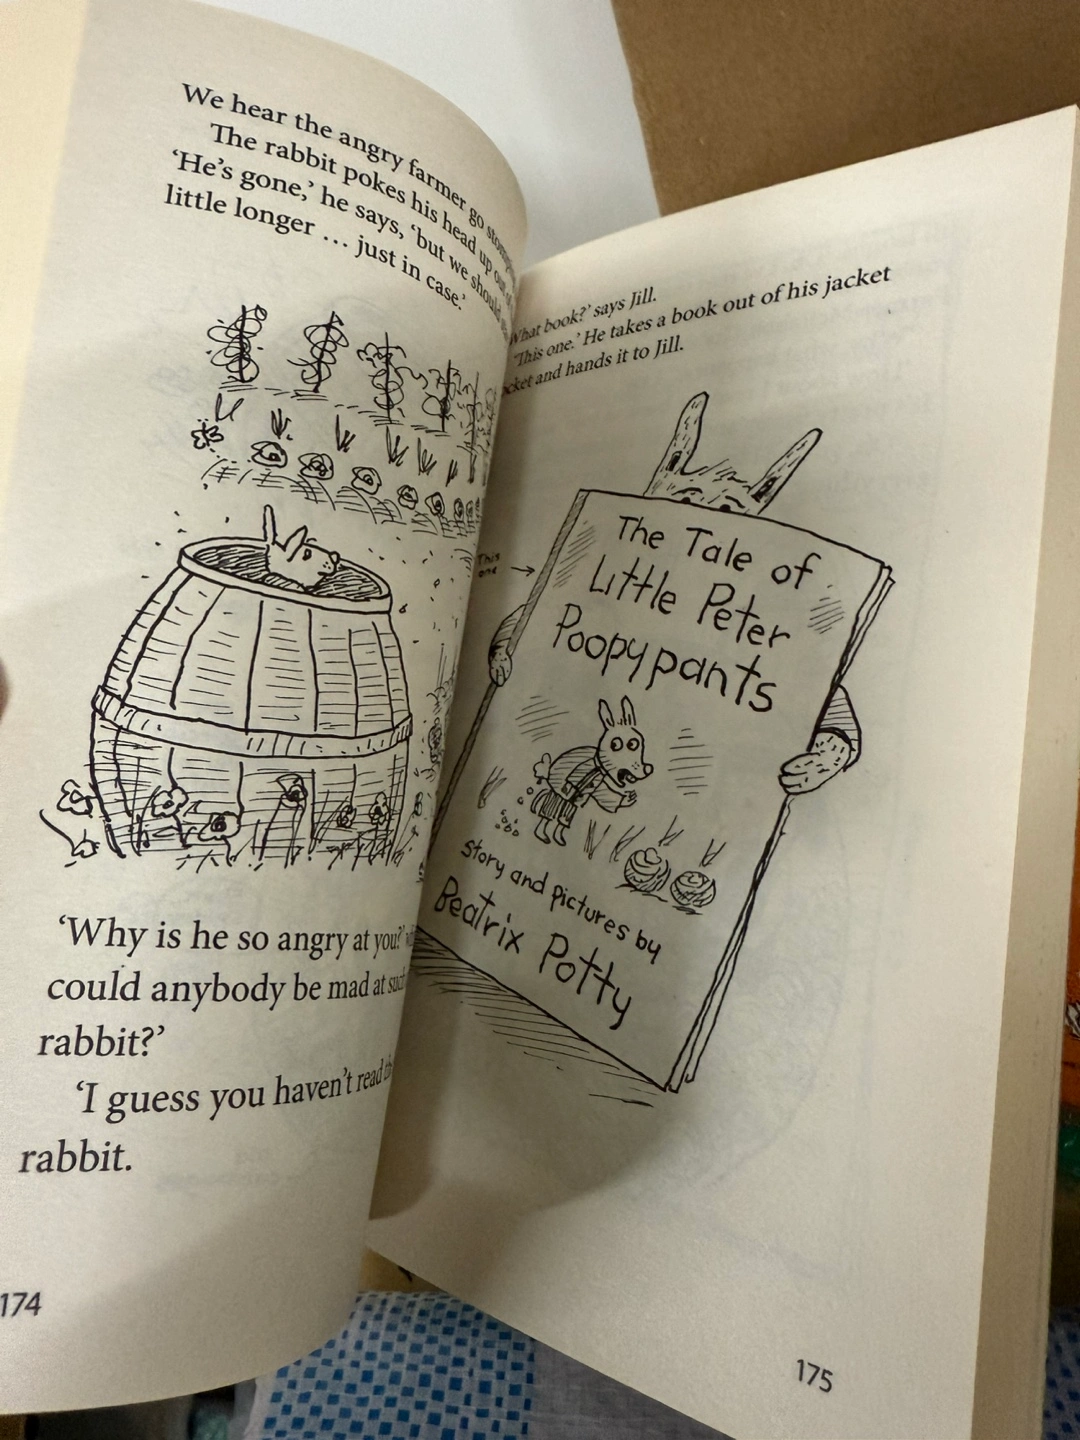 We hear the angry farmer go
The rabbit pokes his head up out of
‘He’s gone,’ he says, ‘but we should
little longer … just in case.’
‘Why is he so angry at you?’
could anybody be mad at such
rabbit?’
‘I guess you haven’t read
rabbit.
174
What book?’ says Jill.
‘This one.’ He takes a book out of his jacket
and hands it to Jill.
This
one
The Tale of
Little Peter
Poopypants
story and pictures by
Beatrix Potty
175